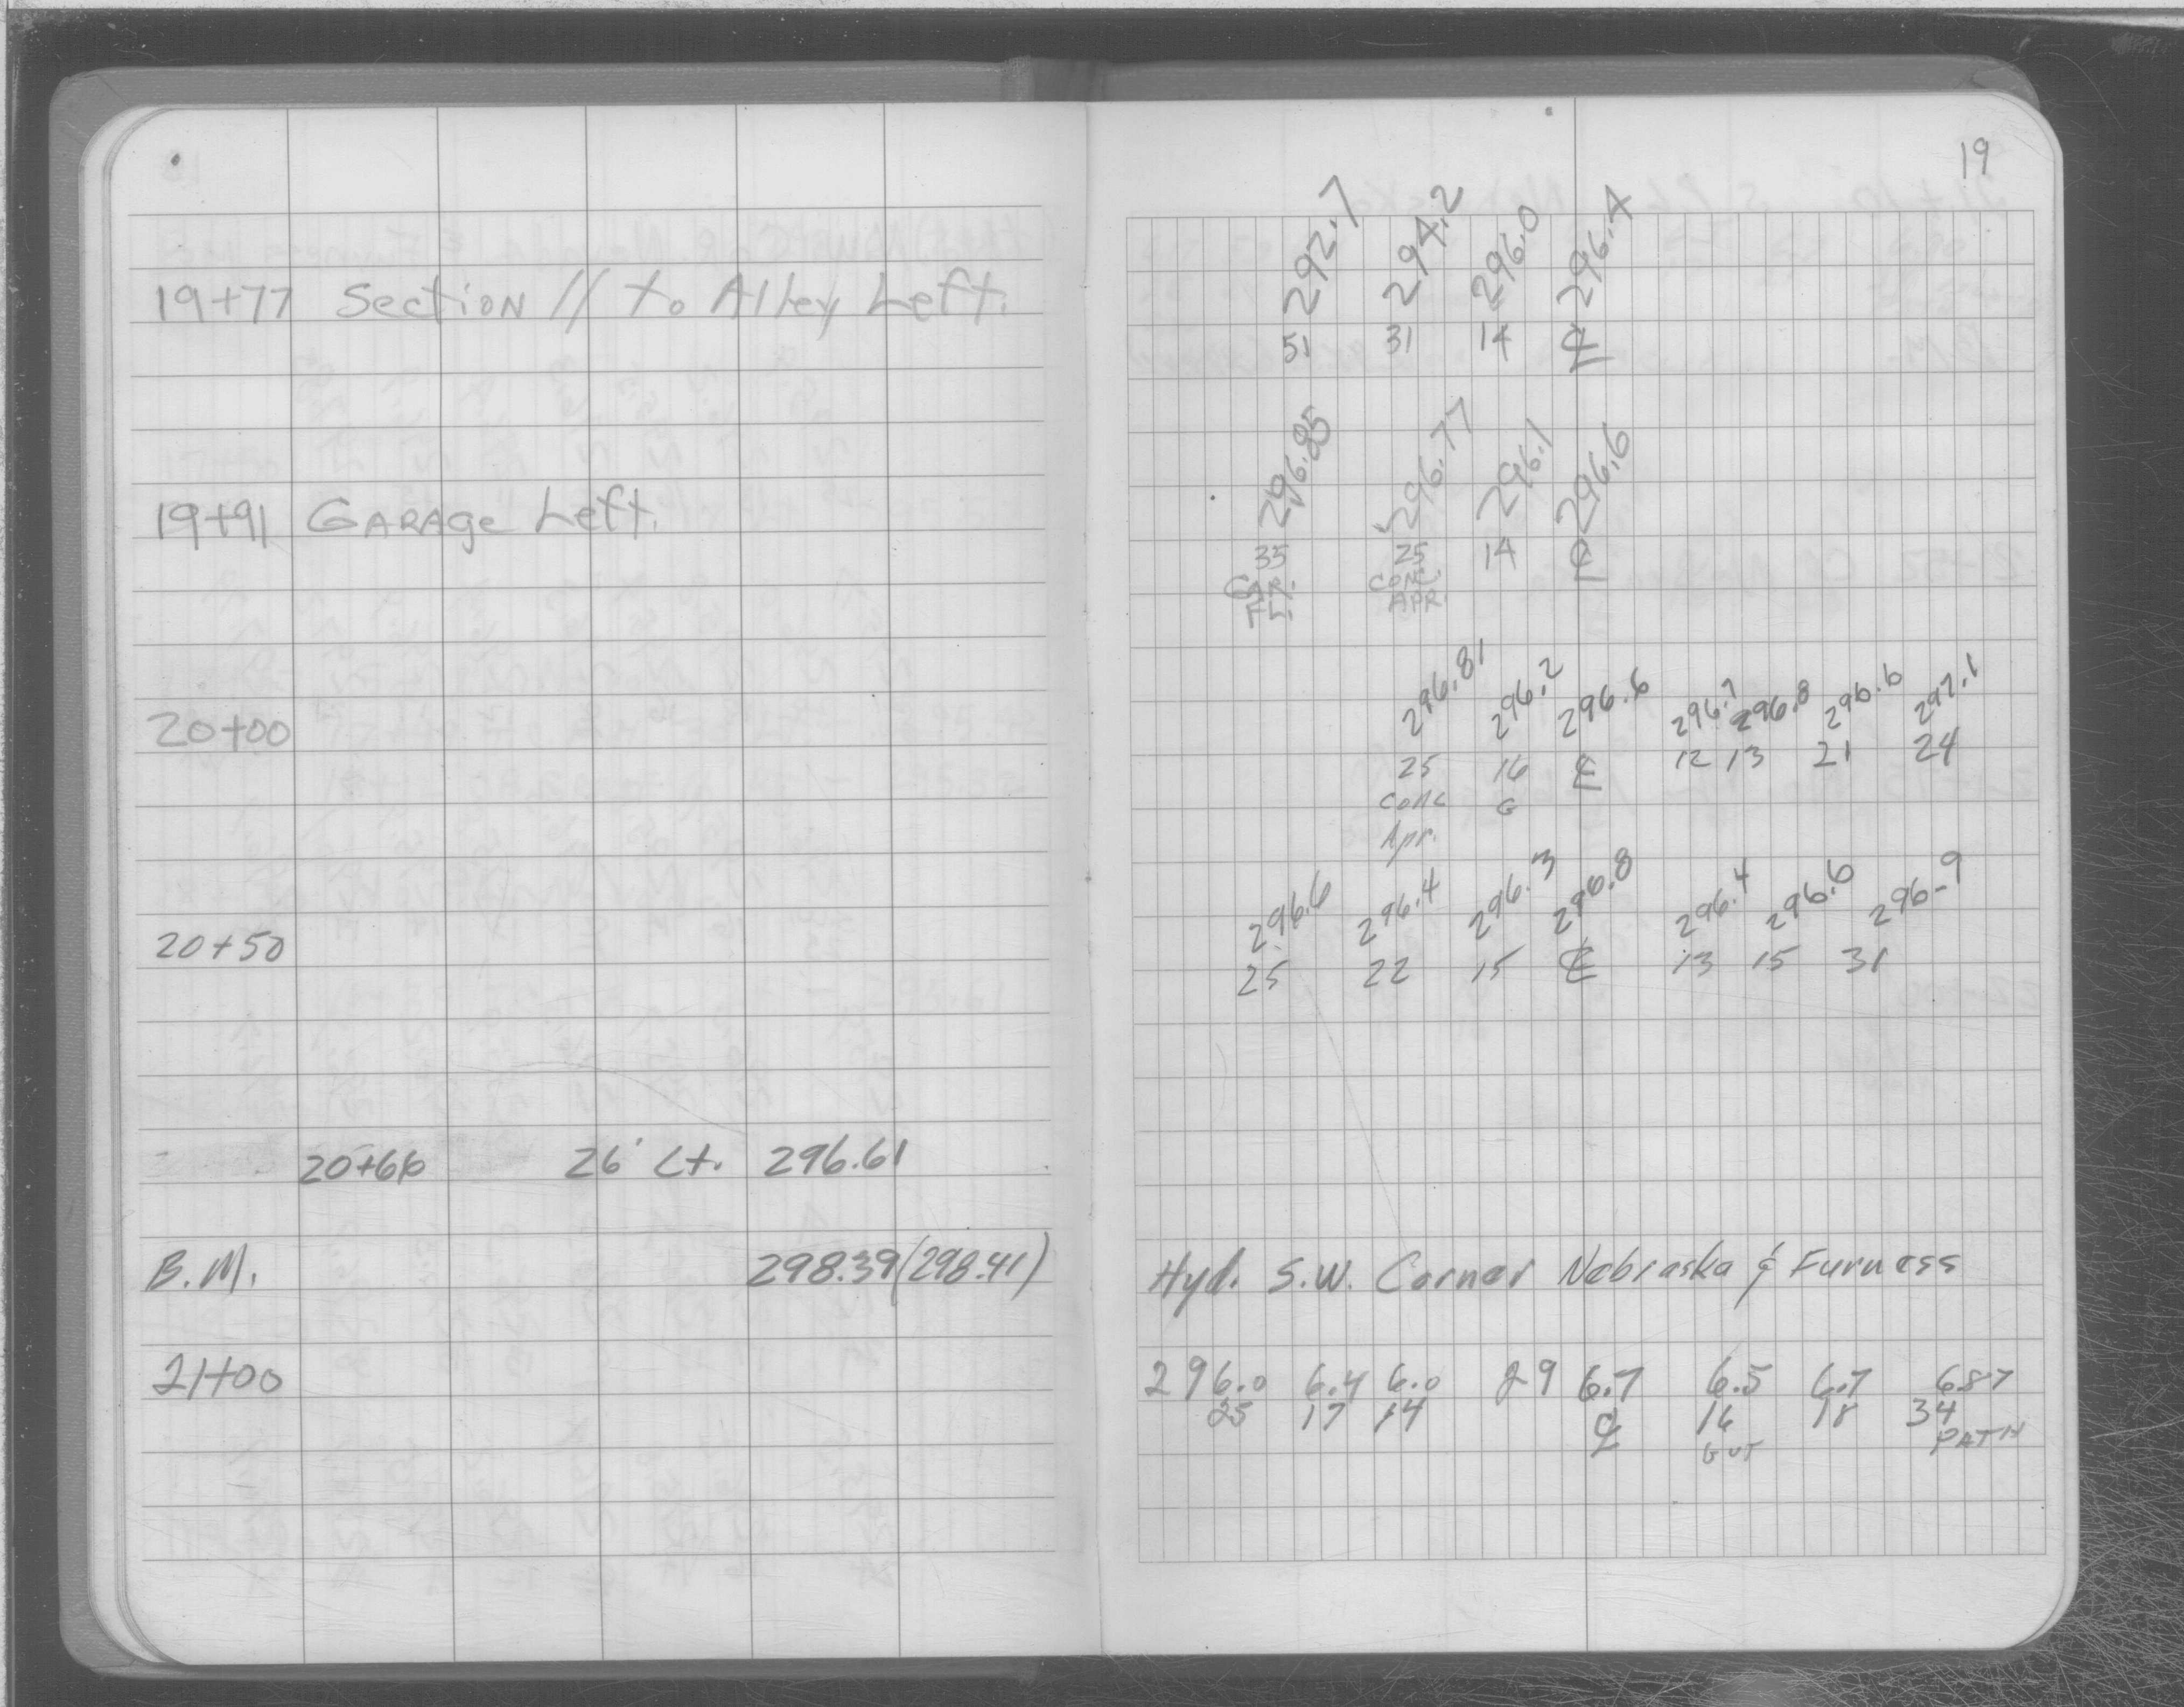 19+77 Section // to Alley Left.
19+91 GARAGe Left.
20+00
20+50
20+66 26' Lt. 296.61
B.M. 298.39 (298.41)
21+00
19
292.7 294.2 296.0 296.4
51 31 14 ℄
296.85 296.77 296.1 296.6
35 25 14 ℄
GAR. CONC.
FL. APR.
296.81 296.2 296.6 296.7 296.8 296.6 297.1
25 16 ℄ 12 13 21 24
Conc G
Apr.
296.6 296.4 296.3 296.8 296.4 296.6 296.9
25 22 15 ℄ 13 15 31
Hyd. S.W. Corner Nebraska & Furness
296.0 6.4 6.0 296.7 6.5 6.7 6.87
25 17 14 ℄ 16 18 34
GUT PATH